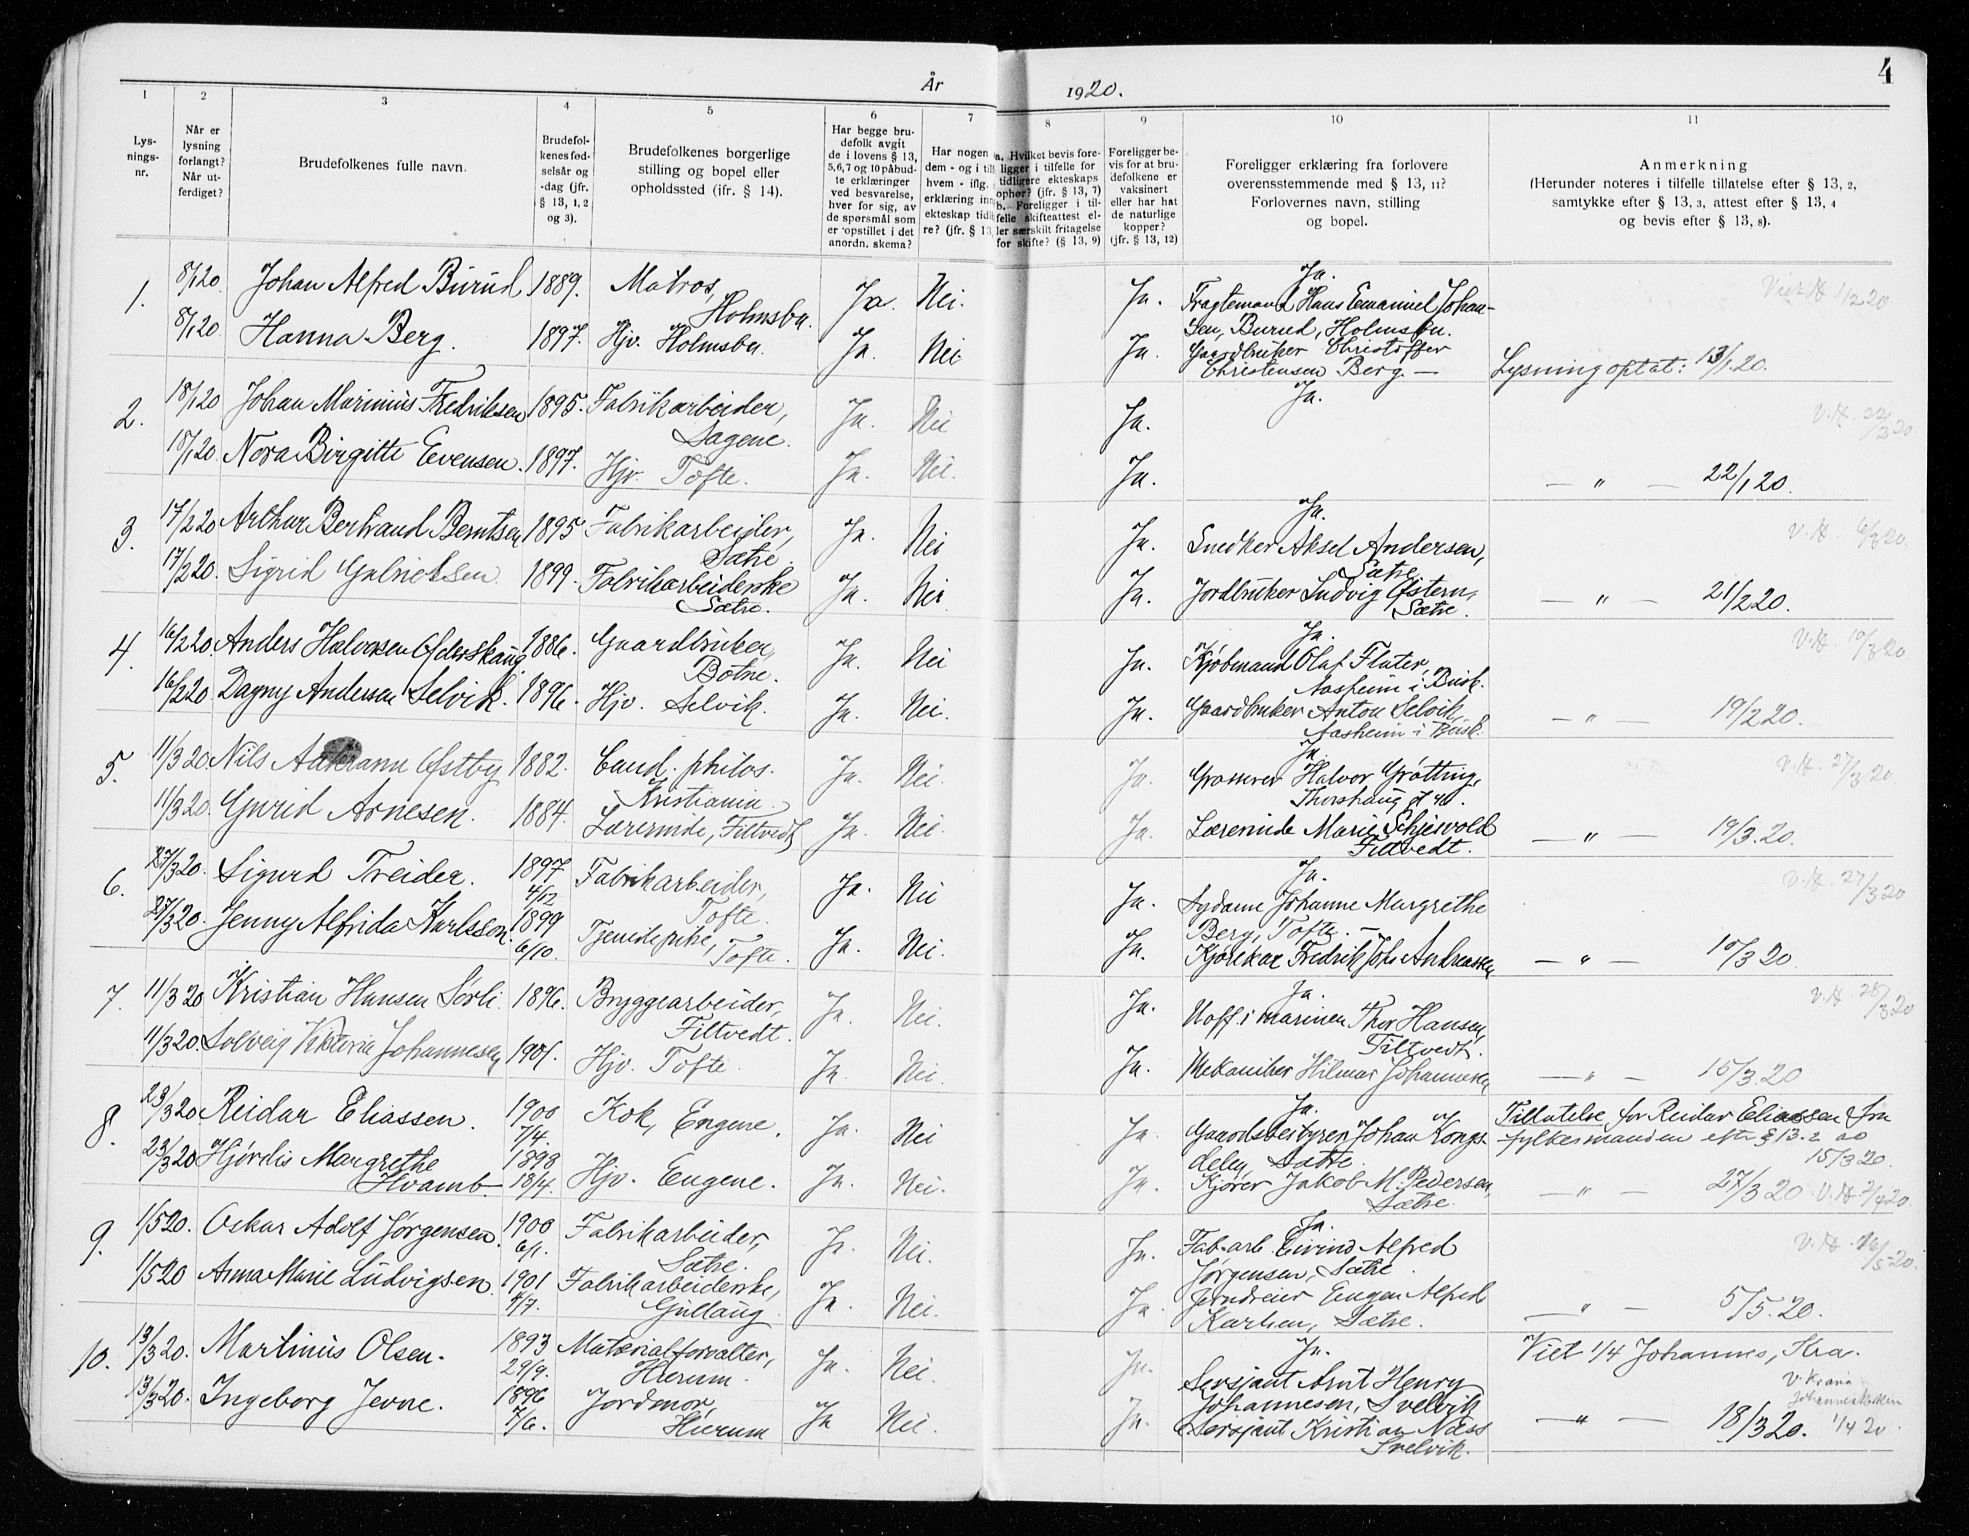 År 1920. 4
1 2 3 4 5 6 7 8 9 10 11
Lys-
nings-
nr.
Når er
lysning
forlangt?
Når ut-
ferdiget?
Brudefolkenes fulle navn.
Brudefol-
kenes fød-
selsår og
-dag (jfr.
§ 13, 1, 2
og 3).
Brudefolkenes borgerlige
stilling og bopel eller
opholdssted (ifr. § 14).
Har begge bru-
defolk avgit
de i lovens § 13,
5,6,7 og 10 påbud-
te erklæringer
ved besvarelse,
hver for sig, av
de spørsmål som
er opstillet i det
anordn. skema?
Har nogen
dem - og i til
hvem - iflg.
erklæring inn
ekteskap tidl
re? (jfr. § 13
a. Hvilket bevis fore-
ligger i tilfelle for
tidligere ekteskaps
ophør? (jfr. § 13, 7)
b. Foreligger i til-
felle skifteattest el-
ler særskilt fritagelse
for skifte? (§ 13, 9)
Foreligger be-
vis for at bru-
defolkene er
vaksinert
eller har hat
de naturlige
kopper?
(jfr. § 13, 12)
Foreligger erklæring fra forlovere
overensstemmende med § 13, 11?
Forlovernes navn, stilling
og bopel.
Anmerkning
(Herunder noteres i tilfelle tillatelse efter § 13, 2,
samtykke efter § 13, 3, attest efter § 13, 4
og bevis efter § 13, 8).
1. 8/1 20 Johan Alfred Burud 1889. Matros, Holmsbu. Ja. Nei. Ja. Ja.
Fragtemand Hans Emanuel Johan-
sen, Burud, Holmsbu. 1/2 20
8/1 20 Hanna Berg. 1897. Hjv. Holmsbu. Ja. Nei Ja. Gaardbruker Christoffer
Christensen Berg. — Lysning optat: 13/1 20.
2. 18/1 20 Johan Marinius Fredriksen 1895. Fabrikarbeider, Sagene. Ja. Nei Ja. Ja. V.H. 22/3 20
18/1 20 Nora Birgitte Evensen. 1897. Hjv. Tofte. Ja. Nei. Ja. — " — 22/1 20.
3. 17/2 20 Arthur Bertrand Berntsen 1895 Fabrikarbeider, Sætre. Ja. Nei Ja. Ja.
Snedker Aksel Andersen, Sætre. V.H. 6/3 20.
17/2 20. Sigrid Gabrielsen 1899. Fabrikarbeiderske Sætre. Ja. Nei Ja. Jordbruker Ludvig Østern, Sætre. — " — 21/2 20.
4. 16/2 20. Anders Halvorsen Olderskaug 1886. Gaardbruker, Botne. Ja. Nei Ja. Ja.
Kjøbmand Olaf Fluter, Aasheim i Busk. V.H. 10/3 20
16/2 20 Dagny Andersen Selvik. 1896. Hjv. Selvik. Ja. Nei. Ja. Gaardbruker Anton Selvik,
Aasheim i Busk. — " — 19/2 20.
5. 11/3 20. Nils Østby 1882. Cand. philos. Kristiania. Ja. Nei. Ja. Ja.
Grosserer Halvor Grøtting, V.H. 27/3 20
11/3 20. Gurid Arnesen. 1884. Lærerinde, Filtvedt Ja. Nei. Ja. Lærerinde Marie Schjesvold
Filtvedt. — " — 19/3.20.
6. 27/3 20. Sigurd Treider. 1897 4/12 Fabrikarbeider, Tofte. Ja. Nei Ja. Ja.
Sydame Johanne Margrethe
Berg, Tofte. — V.H. 27/3 20
27/3 20. Jenny Alfrida Karlsson. 1899 6/10. Tjenestepike, Tofte. Ja. Nei. Ja. Fredrik Johs Andreassen — " — 10/3 20
7. 11/3 20 Kristian Hansen Sørli 1896. Bryggearbeider, Filtvedt. Ja. Nei. Ja. Ja.
Uoff. i marinen Thor Hansen,
Filtvedt. V.H. 28/3 20
11/3 20. Solveig Viktoria Johannesen 1901. Hjv. Tofte. Ja. Nei. Ja. Mekaniker Hilmar Johannesen — " — 15/3.20
8. 23/3 20 Reidar Eliassen. 1900 7/4. Kok, Engene. Ja. Nei Ja. Ja.
Gaardsbestyrer Johan Kongs-
deley, Sætre. Tillatelse for Reidar Eliassen fra
fylkesmanden efter § 13.2 av
15/3 20.
23/3 20 Hjørdis Margrethe Hvamb. 1898 18/4. Hjv. Engene. Ja. Nei. Ja. Kjører Jakob M. Pedersen,
Sætre. — " — 27/3 20 V.H. 2/4 20.
9. 1/5 20. Oskar Adolf Jørgensen. 1900 6/1. Fabrikarbeider, Sætre. Ja. Nei. Ja. Ja.
Fab.arb. Eivind Alfred
Jørgensen, Sætre. V.H. 16/5 20.
1/5 20 Anna Marie Ludvigsen. 1901 4/7. Fabrikarbeiderske, Gullaug Ja. Nei. Ja. Eugen Alfred
Karlsen, Sætre. — " — 5/5. 20.
10. 13/3 20. Martinius Olsen. 1893 29/9. Materialforvalter, Hurum. Ja. Nei. Ja. Ja.
Sersjant Arnt Henry
Johannesen, Svelvik Viet 1/4 Johannes, Kra.
13/3 20. Ingeborg Jevne. 1896 7/6. Jordmor, Hurum Ja Nei. Ja. Sersjant Kristian Næss
Svelvik. — " — 18/3 20. V. Krania
Johanneskirken
1/4 20